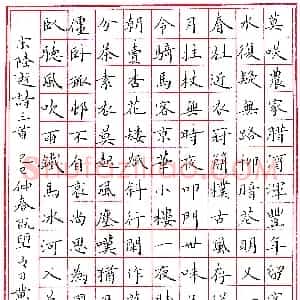 莫笑農家臘酒渾豐年留
水復疑無路柳暗花明又
春社近衣冠簡樸古風存
月拄杖無時夜叩門世味
令騎馬客京華小樓一夜
朝賣杏花矮紙斜行閑作
分茶素衣莫起風塵嘆猶
僵臥孤邨不自哀尚思為
臥聽風吹雨鐵馬冰河入
陸遊詩三首 己巳仲春既望